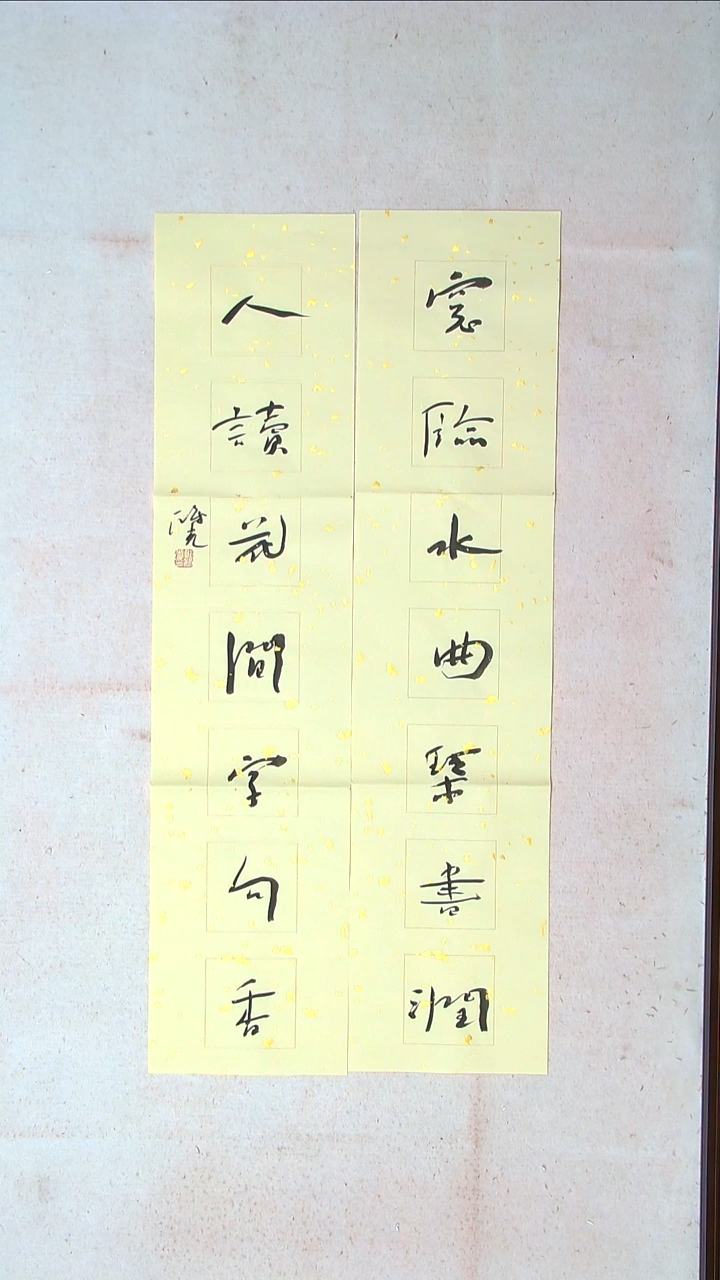 窓臨水曲琴書潤
人讀花間字句香